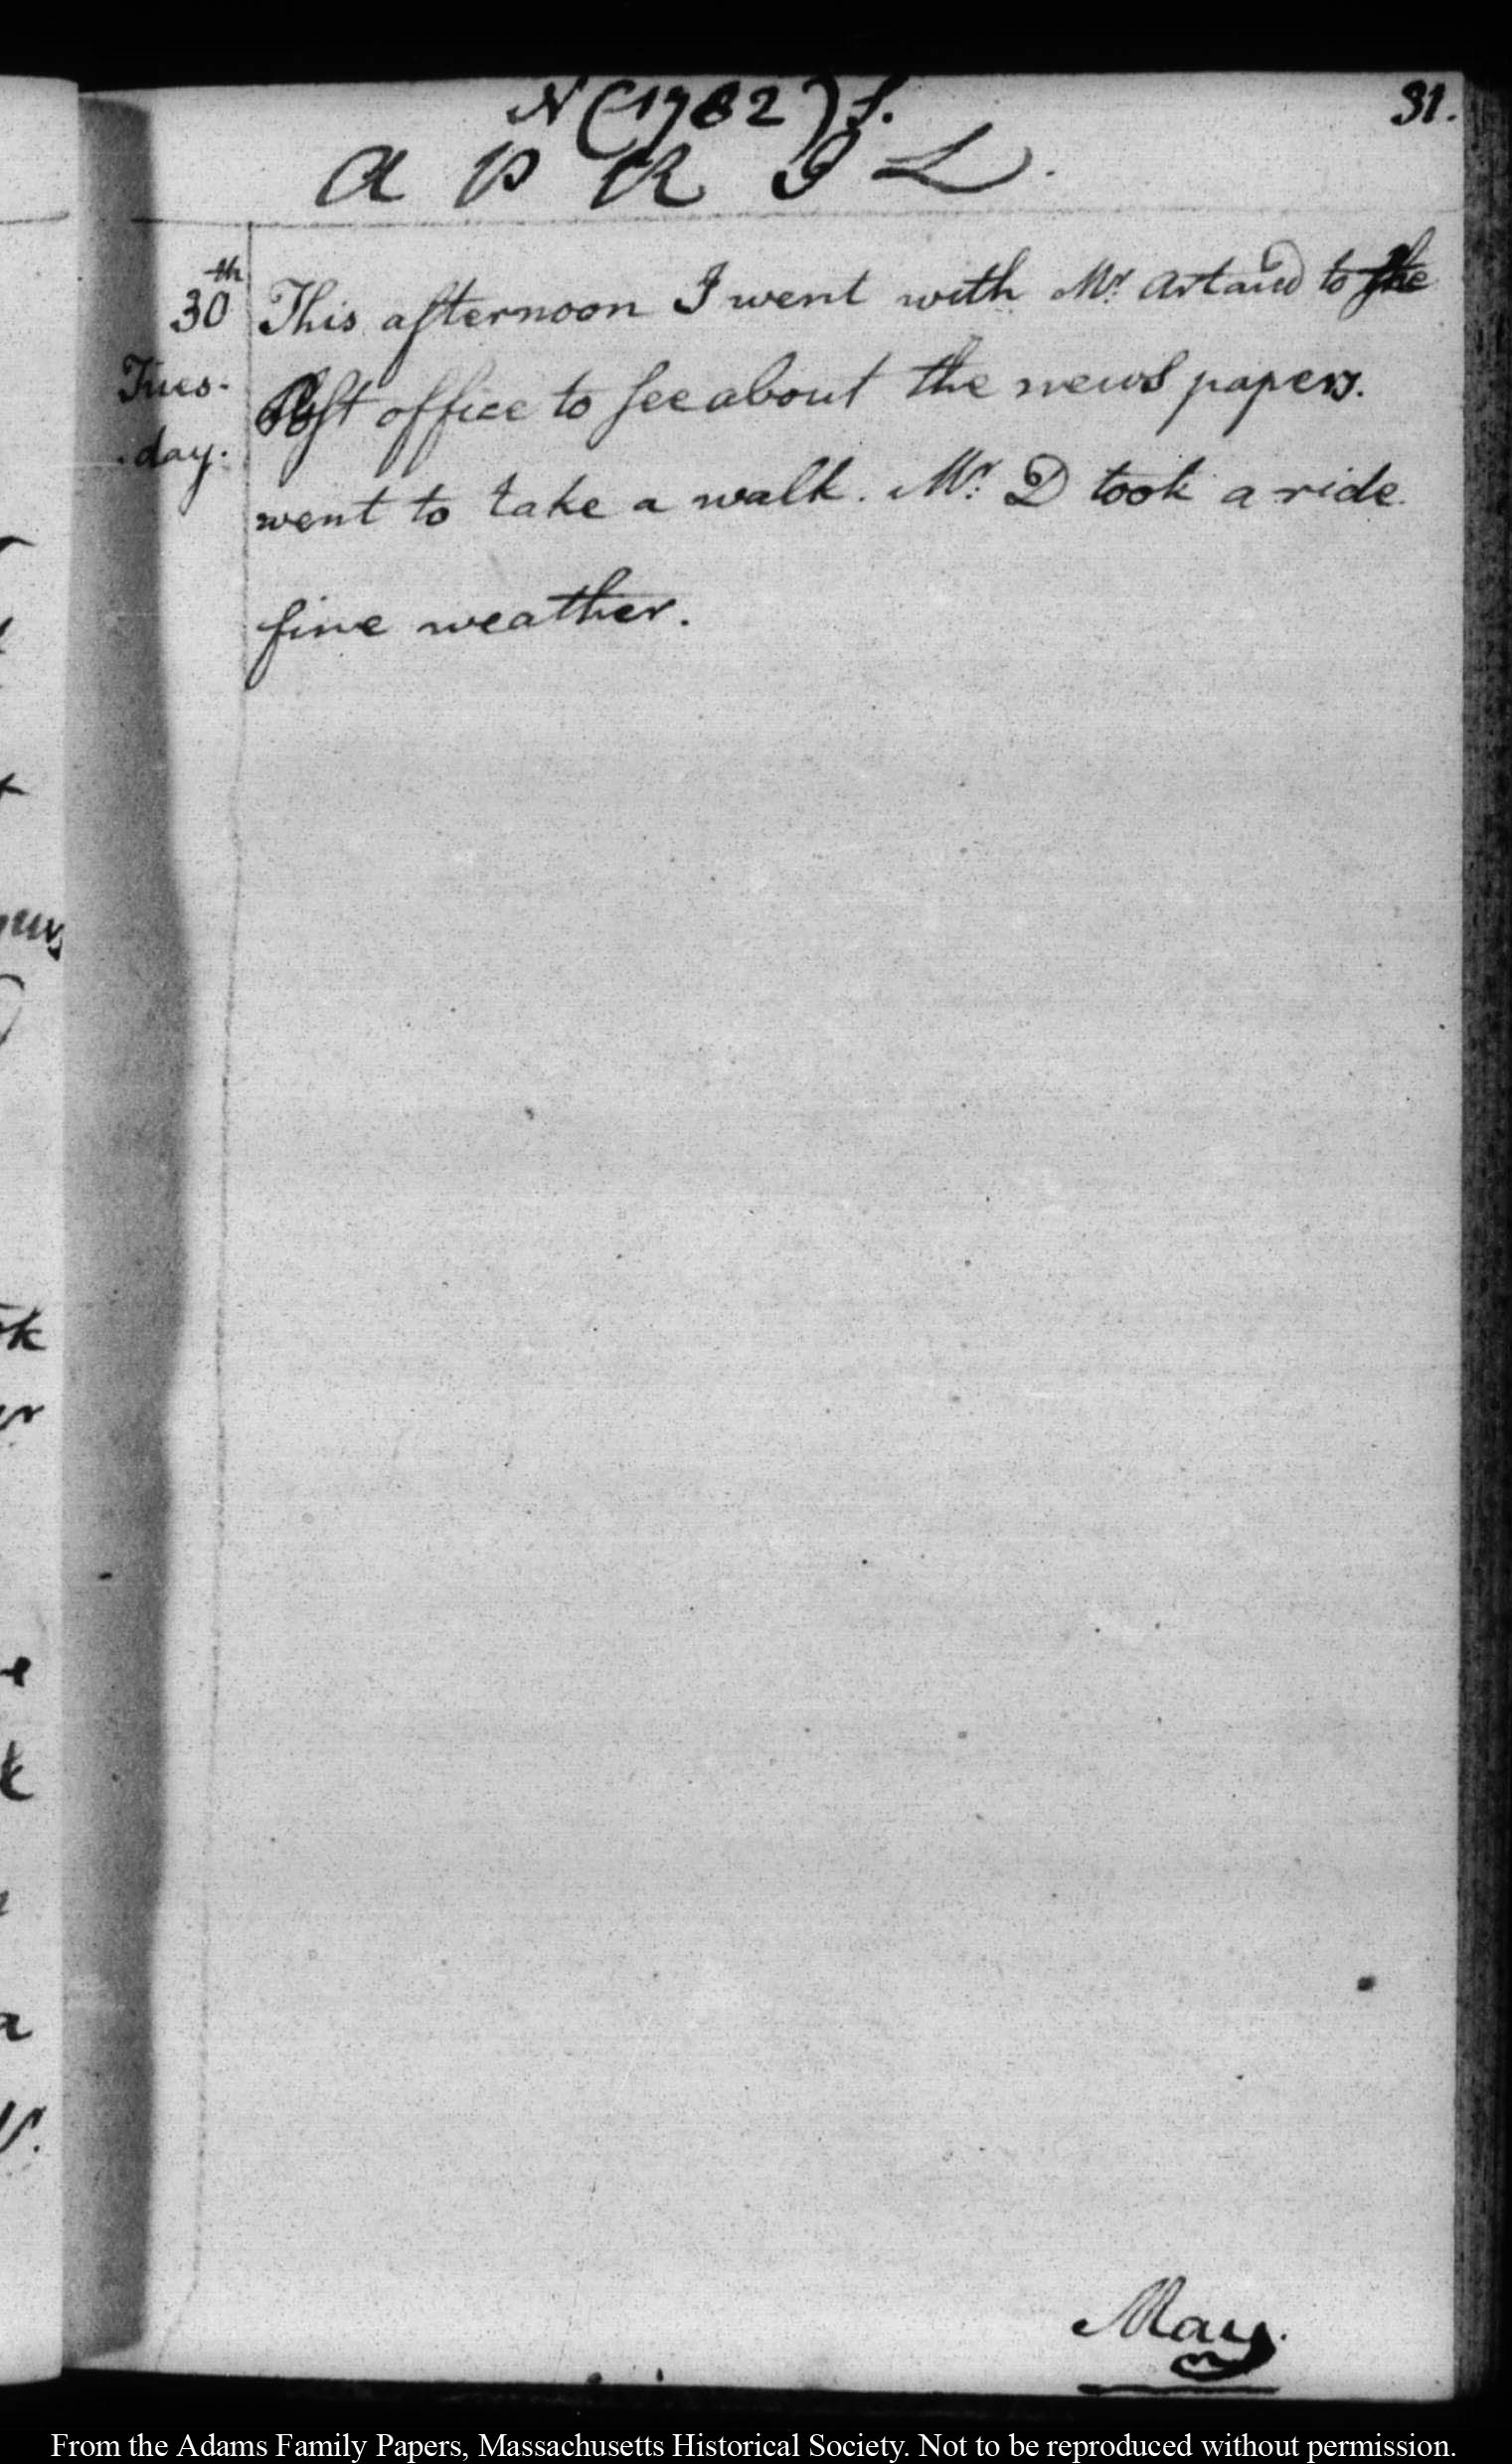 N (1782) S.
31.
A P R I L.
30th
Tues-
day.
This afternoon I went with Mr. Artaud to the
Post office to see about the news papers.
went to take a walk. Mr. D took a ride
fine weather.
ok
er
e
k
a
May.
From the Adams Family Papers, Massachusetts Historical Society. Not to be reproduced without permission.